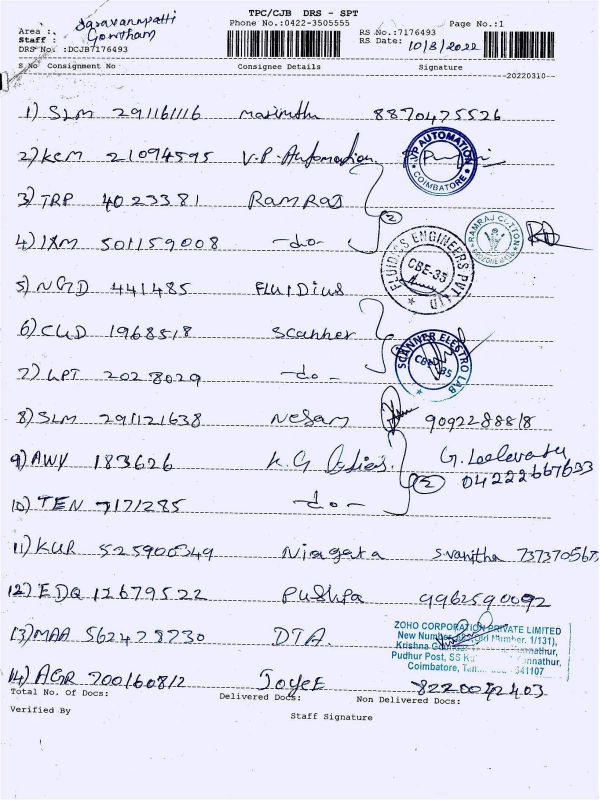 TPC/CJB DRS - SPT
Area : Saravanampatti
Phone No.:0422-3505555
Page No.:1
Staff : Gowtham
RS No.:7176493
DRS No. :DCJB7176493
RS Date: 10/3/2022
S No Consignment No Consignee Details Signature
20220310
1) SLM 291161116 Marimuthu 8870475526
2) KCM 21094595 V.P. Automation
VP AUTOMATION COIMBATORE
3) TRP 4023381 RAMRAJ
2
4) IXM 501159008 -do-
RAMRAJ COTTON
FLUIDICS ENGINEERS PVT LTD CBE-35
5) NGD 441485 FLUIDIUS
6) CUD 1968518 Scanner
SCANNER ELESTRO LAB
7) LPT 2028029 -do-
8) SLM 291121638 Nesam 9092288818
9) AWY 183626 K.G
04222667633
2
10) TEN 7171285 -do-
11) KUR 525900349 Niagara S.vanitha 737370567
12) EDQ 12679522 Pushpa 9962590092
ZOHO CORPORATION PRIVATE LIMITED
New Number, Old Number. 1/131),
13) MAA 562478730 DTA.
Krishna
Pudhur Post, SS
Coimbatore, 641107
14) AGR 700160812 Joyee
Total No. Of Docs: Delivered Docs: Non Delivered Docs:
Verified By
Staff Signature